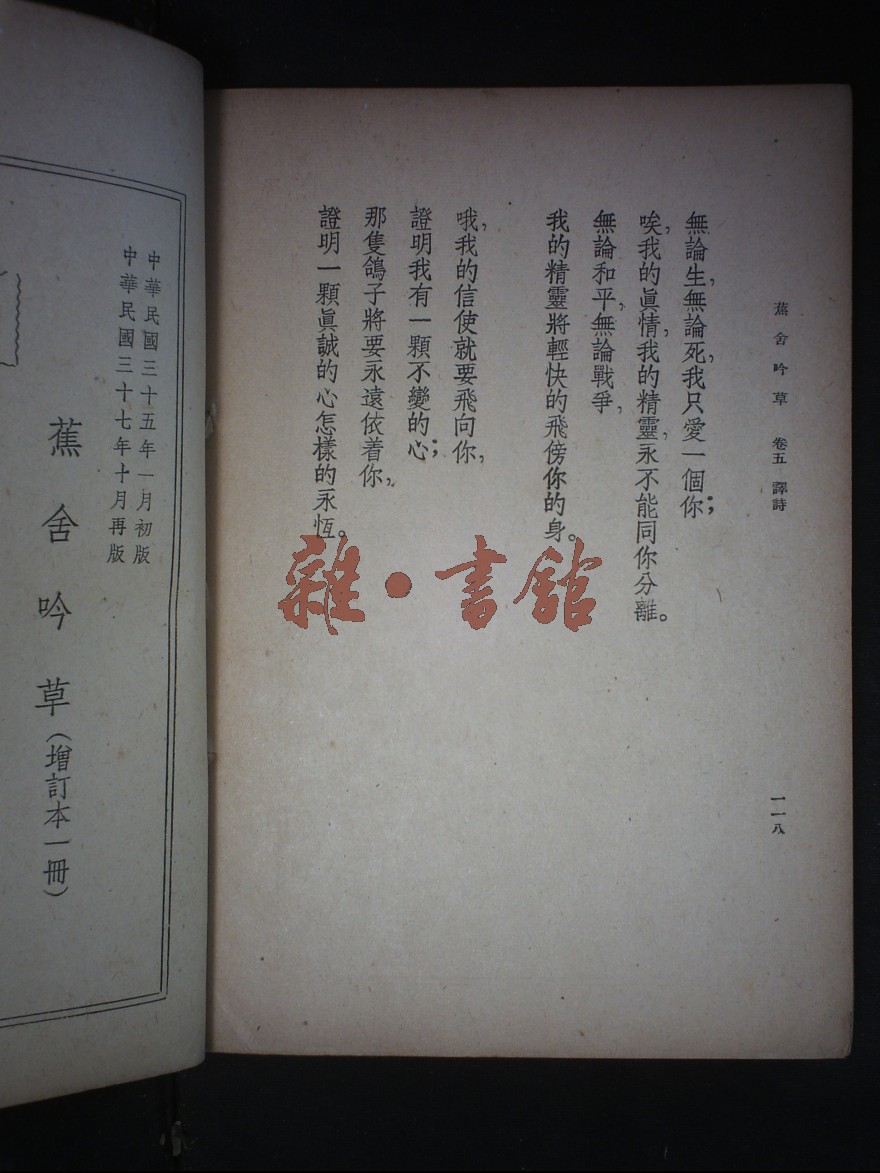 蕉舍吟草 卷五 譯詩
一一八
無論生,無論死,我只愛一個你;
唉,我的眞情,我的精靈,永不能同你分離。
無論和平,無論戰爭,
我的精靈將輕快的飛傍你的身。
哦,我的信使就要飛向你,
證明我有一顆不變的心;
那隻鴿子將要永遠依着你,
證明一顆眞誠的心怎樣的永恆。
雜·書館
中華民國三十五年一月初版
中華民國三十七年十月再版
蕉舍吟草(增訂本一冊)